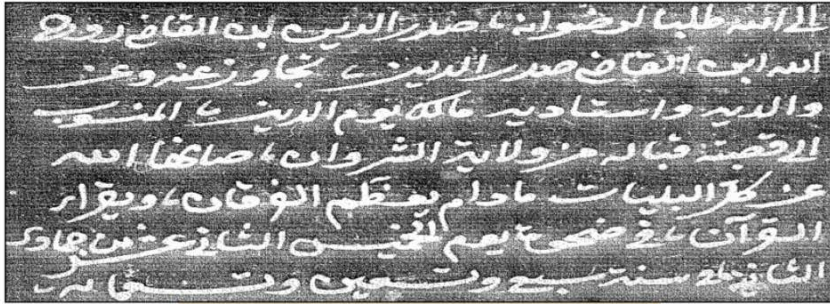 الى الله طلبا لرضوانه، صدر الدين ابن القاضي روح
الله ابن القاضي صدر الدين، تجاوز عنه وعن
والديه واستاديه مالك يوم الدين، المنسوب
الى قصبة قباله من ولاية الشروان، صانها الله
عن كل البليات مادام يعظم الفرقان، ويقراء
القرآن، في ضحوة يوم الخميس الثاني عشر من جمادى
الثانية سنة سبع وتسعين وتسعمائه